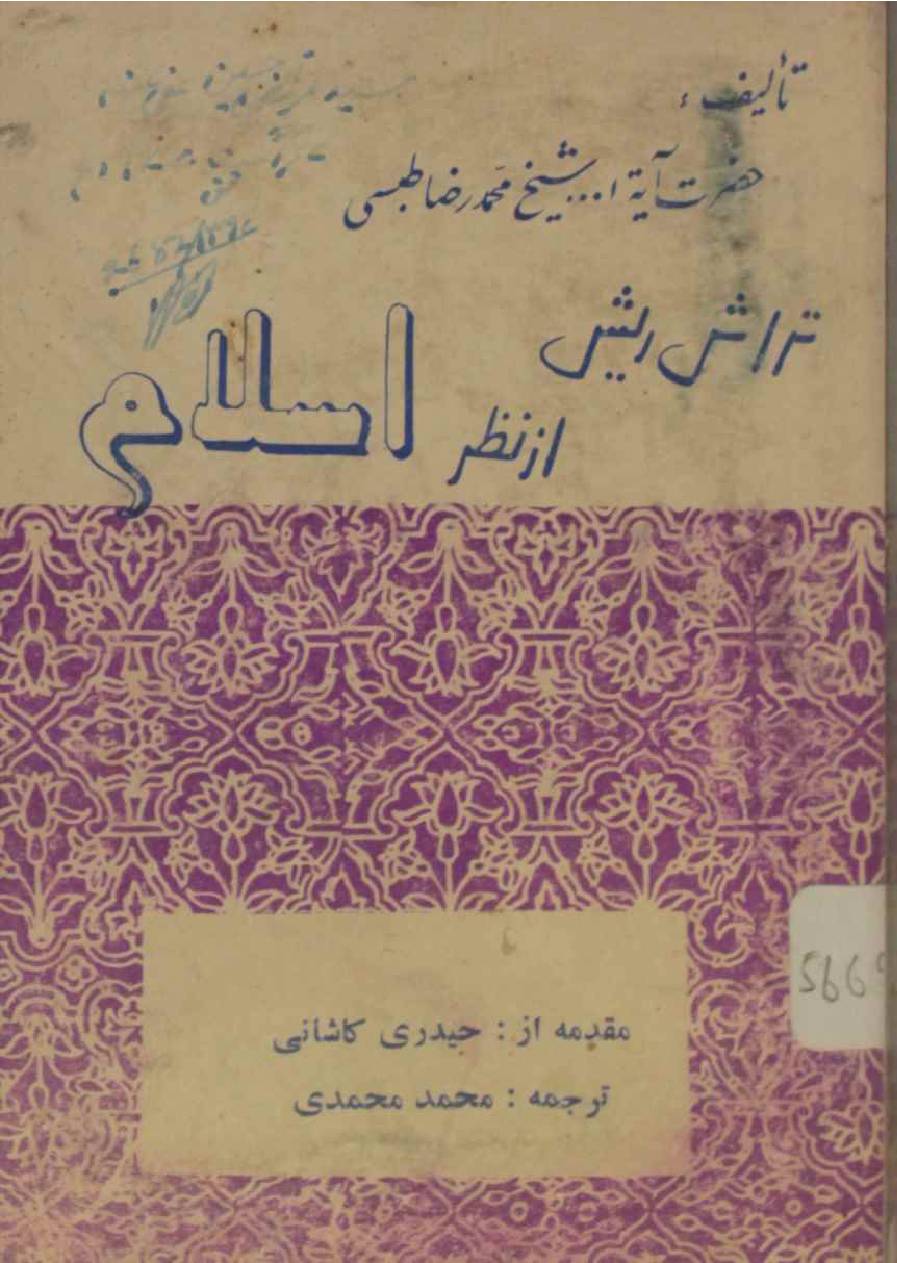 تألیف :
حضرت آیة ا... شیخ محمد رضا طبسی
تراش ریش
از نظر اسلام
5669
مقدمه از : حیدری کاشانی
ترجمه : محمد محمدی